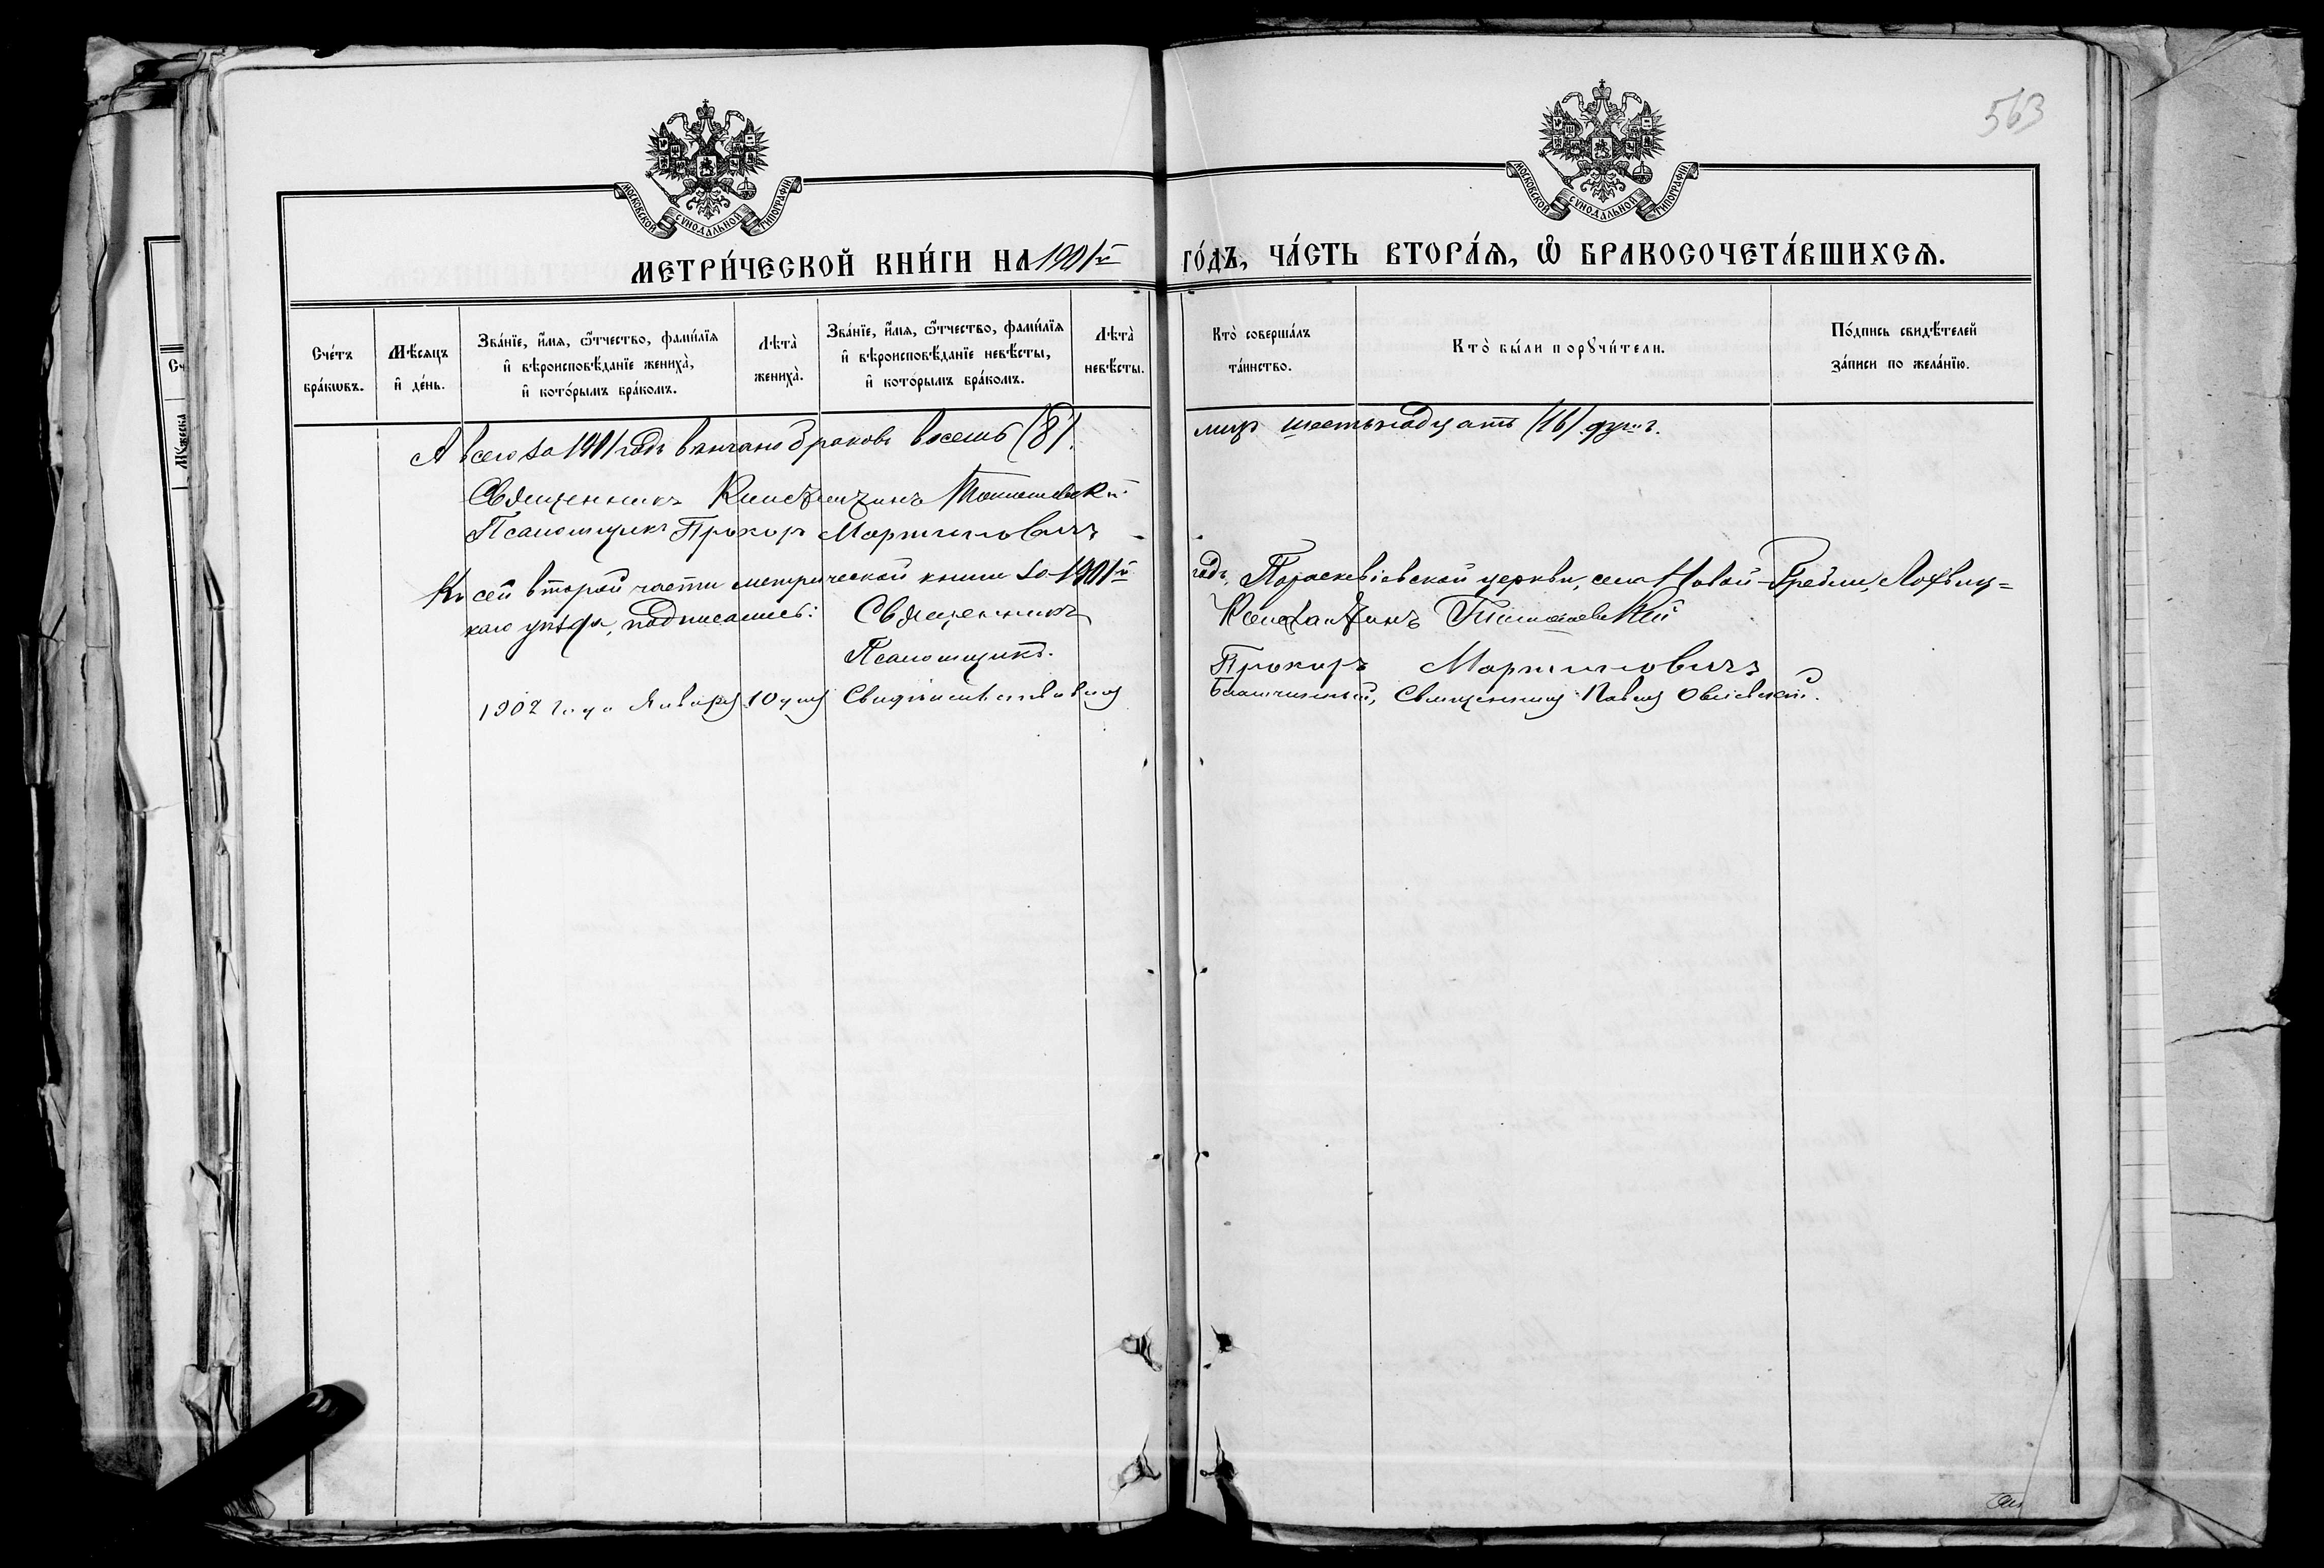 563
МОСКОВСКОЙ СѴНОДАЛЬНОЙ ТИПОГРАФІИ
МОСКОВСКОЙ СѴНОДАЛЬНОЙ ТИПОГРАФІИ
МЕТРИ́ЧЕСКОЙ КНИ́ГИ НА 1901й ГО́ДЪ, ЧА́СТЬ ВТОРА́Ѧ, Ѽ БРАКОСОЧЕТА́ВШИХСѦ.
Сче́тъ бра́кѡвъ.
Мѣ́сяцъ и҆ де́нь.
Зва́нїе, и҆́мя, ѻ҆́тчество, фами́лїя и҆ вѣроисповѣ́данїе жениха̀, и҆ кото́рымъ бра́комъ.
Лѣта̀ жениха̀.
Зва́нїе, и҆́мя, ѻ҆́тчество, фами́лїя и҆ вѣроисповѣ́данїе невѣ́сты, и҆ кото́рымъ бра́комъ.
Лѣта̀ невѣ́сты.
Кто̀ соверша́лъ та́инство.
Кто̀ бы́ли порꙋчи́тели.
По́дпись свидѣ́телей за́писи по жела́нїю.
А всего за 1901 годъ вѣнчано браковъ восемь (8). лицъ шестьнадцать (16) душъ.
Священникъ Константинъ
Псаломщикъ Прокоръ Мартиновичъ
Къ сей второй части метрической книги за 1901й годъ, Параскевіевской церкви, села Новой-Гребли, Лохвиц=
каго уѣзда, подписались: Священникъ Константинъ
Псаломщикъ. Прокоръ Мартиновичъ
1902 года Января 10 дня Свидѣтельствовалъ Благочинный, Священникъ Павелъ